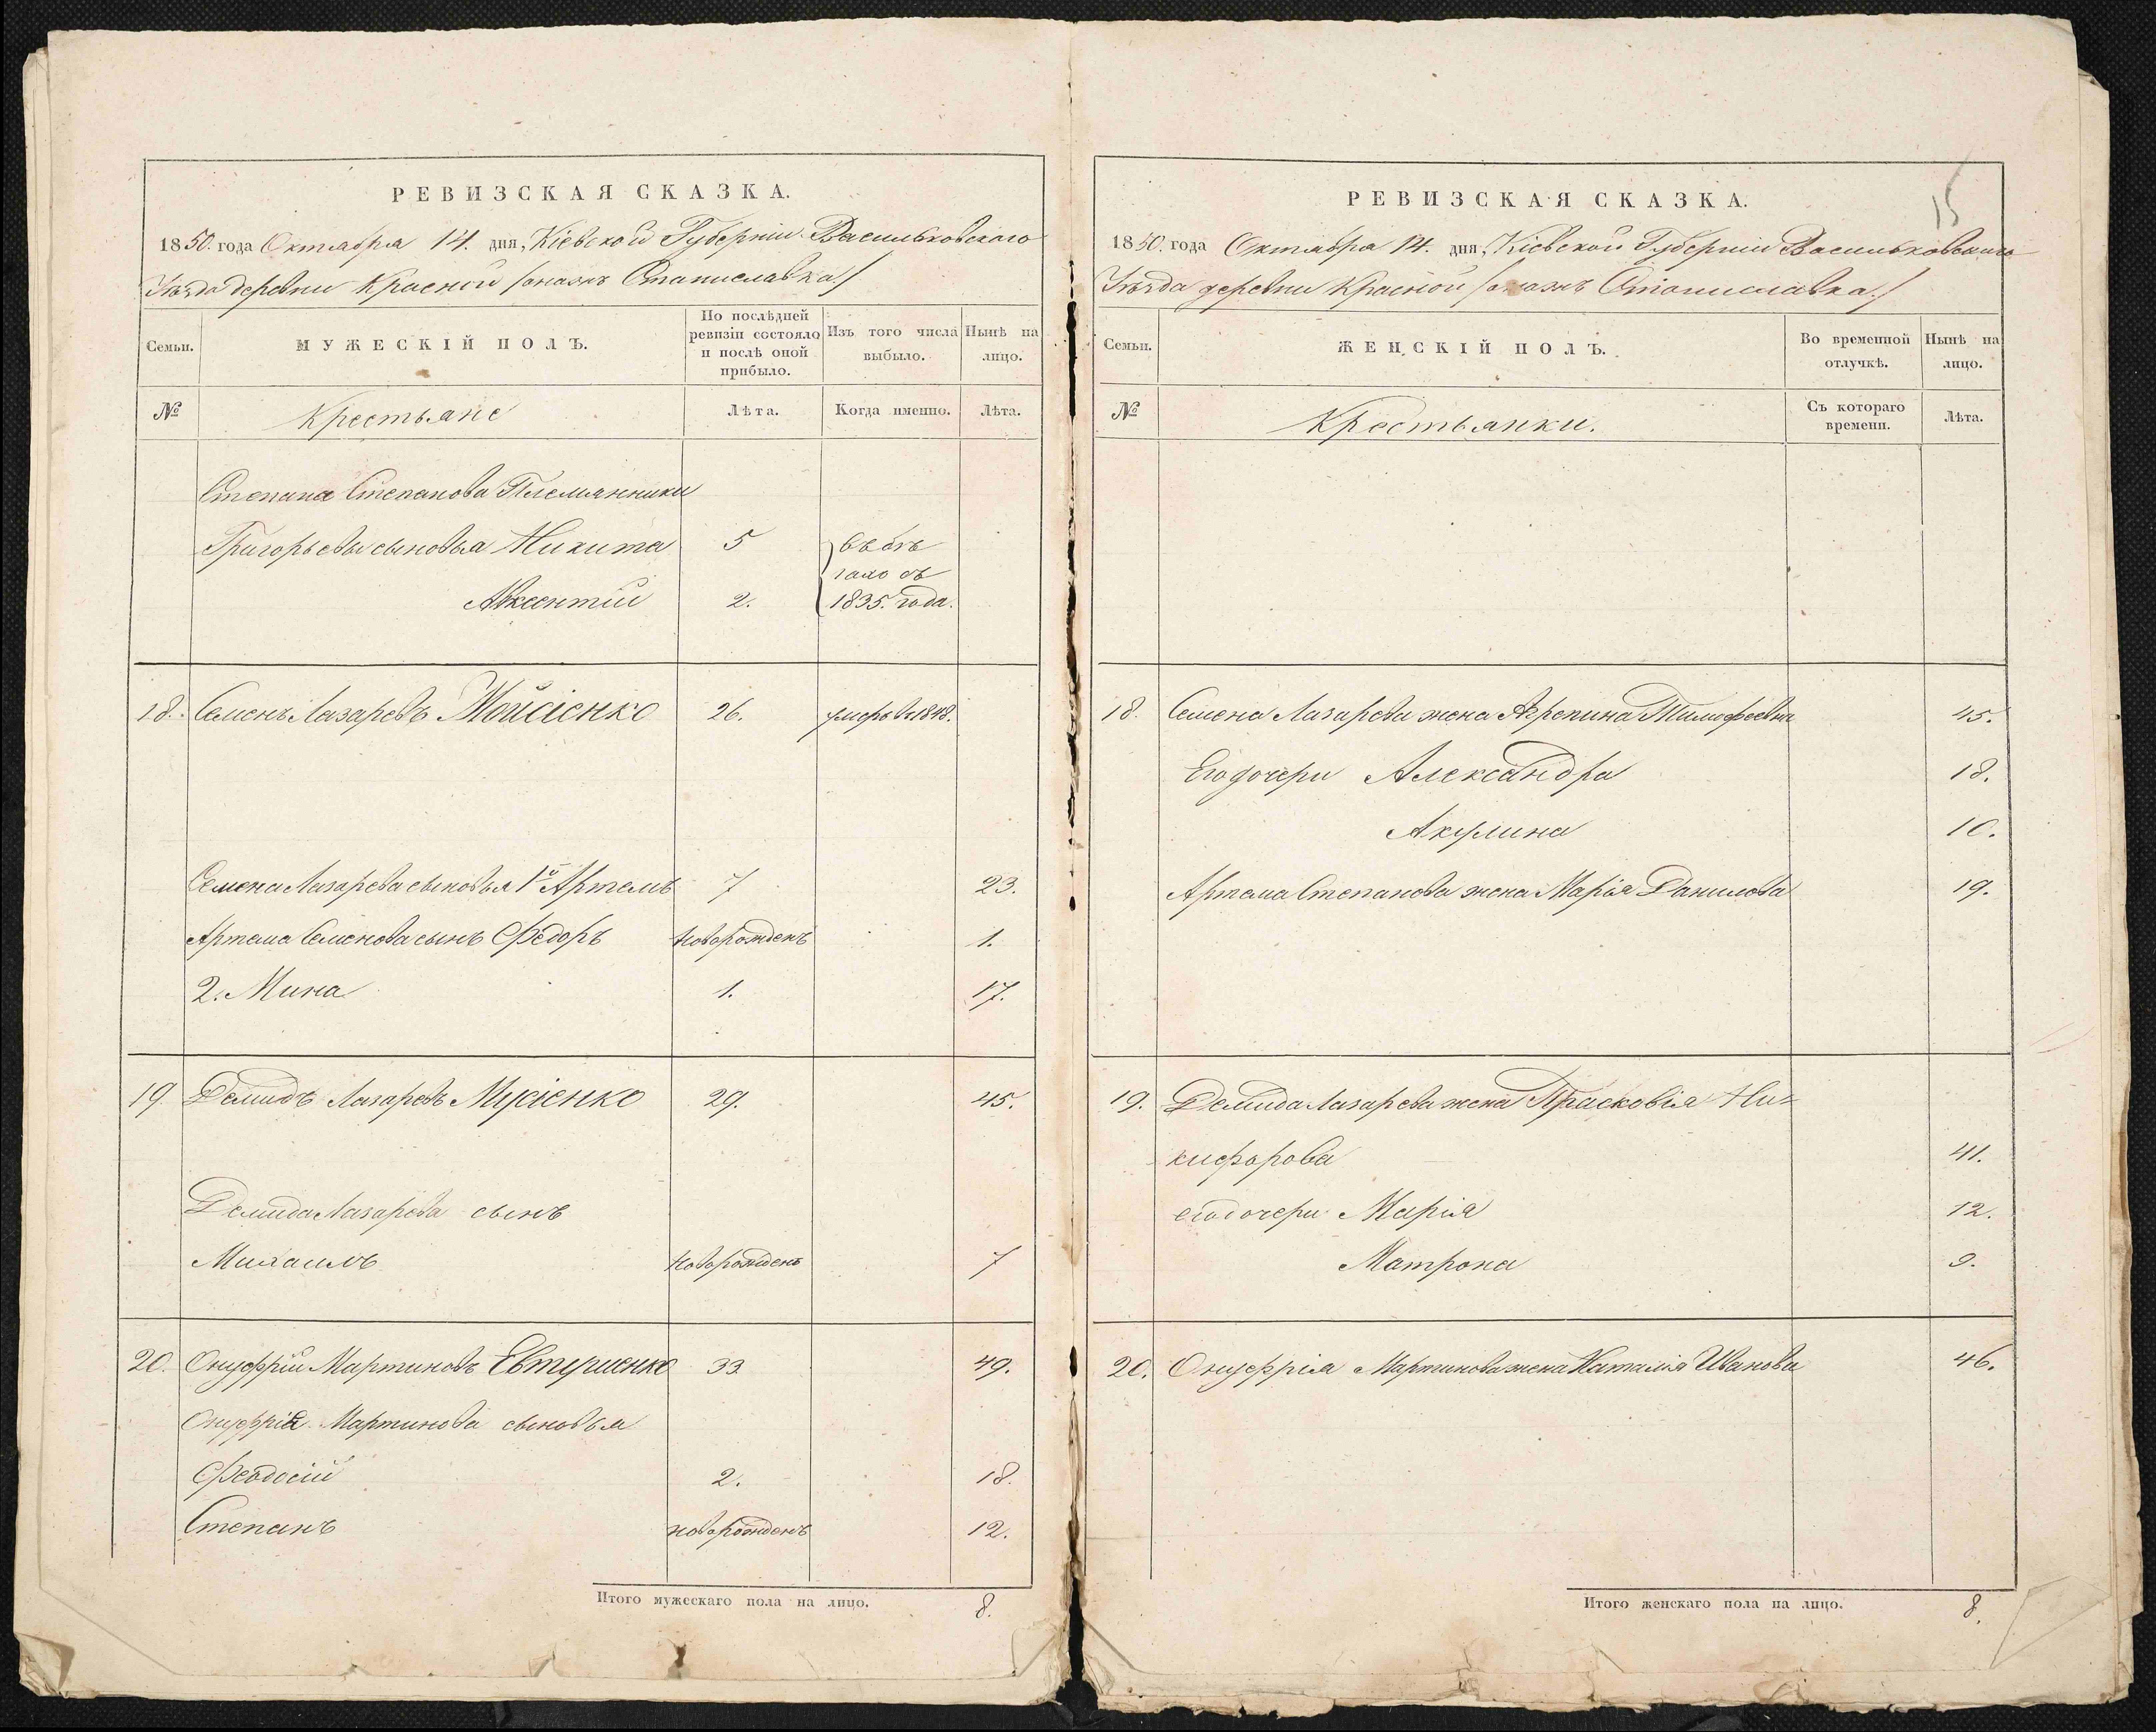 РЕВИЗСКАЯ СКАЗКА.
1850. года Октября 14. дня, Кіевской Губерніи Васильковского
Уѣзда деревни Красной /онажъ Станиславка/
Семьи.
МУЖЕСКІЙ ПОЛЪ.
По послѣдней ревизіи состояло и послѣ оной прибыло.
Изъ того числа выбыло.
Нынѣ на лицо.
№
Крестьяне
Лѣта.
Когда именно.
Лѣта.
Степана Степанова Племянники
Григорьевы сыновья Никита 5 въ бѣ
гахъ съ
Авксентій 2. 1835. года.
18. Семенъ Лазаревъ Мойсіенко 26. умеръ въ 1848.
Семена Лазарева сыновья 1й Артемъ 7 23.
Артема Семенова сынъ Федоръ новорожденъ 1.
2. Мина 1. 17.
19 Демидъ Лазаревъ Мусіенко 29. 45.
Демида Лазарева сынъ
Михаилъ новорожденъ 7
20. Онуфрій Мартиновъ Евтушенко 33. 49.
Онуфрія Мартинова сыновья
Феодосій 2. 18.
Степанъ новорожденъ 12.
Итого мужескаго пола на лицо. 8.
15
РЕВИЗСКАЯ СКАЗКА.
1850. года Октября 14. дня, Кіевской Губерніи Васильковского
Уѣзда деревни Красной /онажъ Станиславка/
Семьи.
ЖЕНСКІЙ ПОЛЪ.
Во временной отлучкѣ.
Нынѣ на лицо.
№
Крестьянки.
Съ котораго времени.
Лѣта.
18. Семена Лазарева жена Агрепина Тимофеевна 45.
Его дочери Александра 18.
Акулина 10.
Артема Степанова жена Марія Данилова 19.
19. Демида Лазарева жена Прасковія Ни=
кифорова 41.
его дочери Марія 12.
Матрона 9.
20. Онуфрія Мартинова жена Наталія Иванова 46.
Итого женскаго пола на лицо. 8.